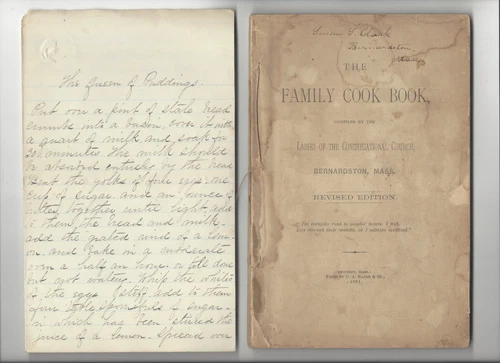 The Queen of Puddings.
Put over a pint of stale bread
crumbs into a basin, cover it with
a quart of milk and soak for
30 minutes the milk should
be absorbed entirely by the bread
Beat the yolks of four eggs one
cup of sugar and an ounce of
butter together until light add
to them the bread and milk
add the grated rind of a lem-
on and bake in a moderate
oven a half an hour or till done
but not watery. Whip the whites
of the eggs stiff add to them
four tablespoonfuls of sugar
in which has been stirred the
juice of a lemon. Spread over
Clark
Bernardston
Mass
THE
FAMILY COOK BOOK,
COMPILED BY THE
LADIES OF THE CONGREGATIONAL CHURCH,
BERNARDSTON, MASS.
REVISED EDITION.
1881.